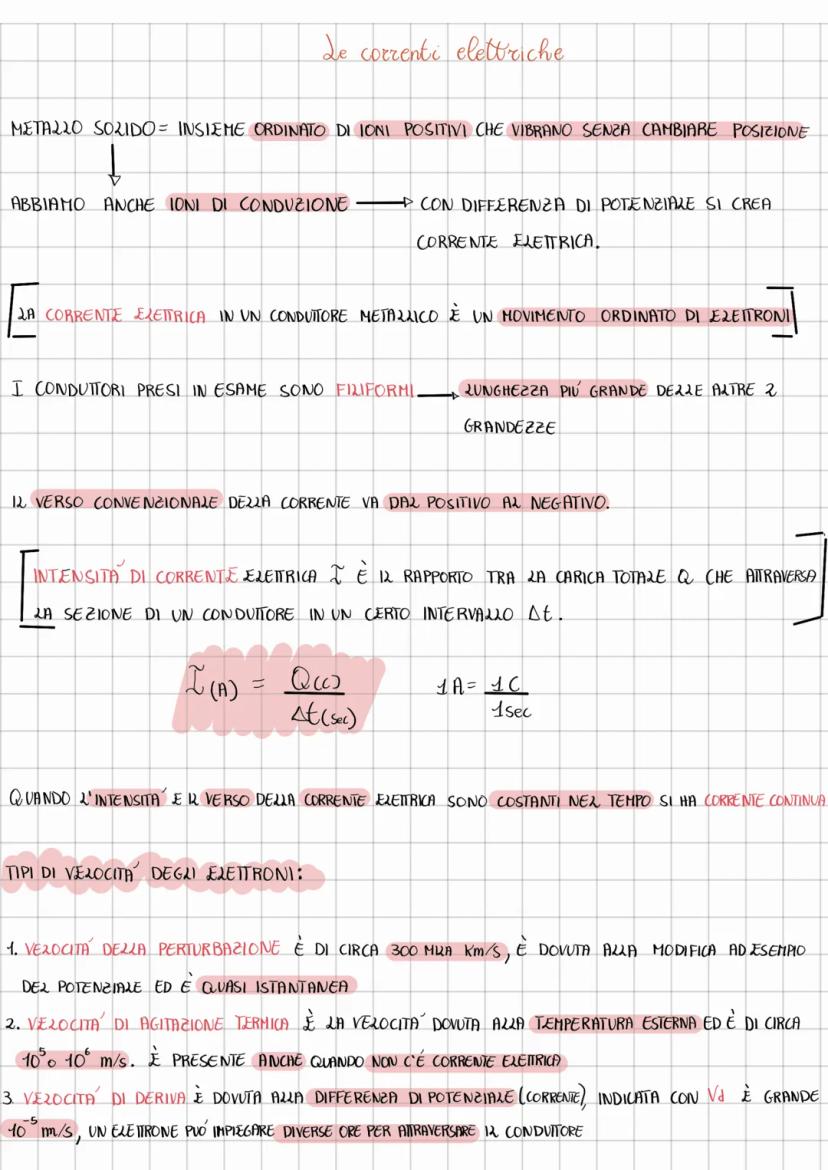 Le correnti elettriche
METALLO SOLIDO = INSIEME ORDINATO DI IONI POSITIVI CHE VIBRANO SENZA CAMBIARE POSIZIONE
ABBIAMO ANCHE IONI DI CONDUZIONE → CON DIFFERENZA DI POTENZIALE SI CREA
CORRENTE ELETTRICA.
LA CORRENTE ELETTRICA IN UN CONDUTTORE METALLICO È UN MOVIMENTO ORDINATO DI ELETTRONI
I CONDUTTORI PRESI IN ESAME SONO FILIFORMI → LUNGHEZZA PIÚ GRANDE DELLE ALTRE 2
GRANDEZZE
IL VERSO CONVENZIONALE DELLA CORRENTE VA DAL POSITIVO AL NEGATIVO.
INTENSITÁ DI CORRENTE ELETTRICA I È IL RAPPORTO TRA LA CARICA TOTALE Q CHE ATTRAVERSA
LA SEZIONE DI UN CONDUTTORE IN UN CERTO INTERVALLO Δt.
I(A) = Q(C) / Δt(sec) 1A = 1C / 1sec
QUANDO L'INTENSITÁ E IL VERSO DELLA CORRENTE ELETTRICA SONO COSTANTI NEL TEMPO SI HA CORRENTE CONTINUA
TIPI DI VELOCITÁ DEGLI ELETTRONI:
1. VELOCITÁ DELLA PERTURBAZIONE È DI CIRCA 300 MILA Km/S, È DOVUTA ALLA MODIFICA AD ESEMPIO
DEL POTENZIALE ED È QUASI ISTANTANEA
2. VELOCITÁ DI AGITAZIONE TERMICA È LA VELOCITÁ DOVUTA ALLA TEMPERATURA ESTERNA ED È DI CIRCA
10⁵ o 10⁶ m/s. È PRESENTE ANCHE QUANDO NON C'É CORRENTE ELETTRICA
3. VELOCITÁ DI DERIVA È DOVUTA ALLA DIFFERENZA DI POTENZIALE (CORRENTE), INDICATA CON Vd È GRANDE
10⁻⁵ m/s, UN ELETTRONE PUÓ IMPIEGARE DIVERSE ORE PER ATTRAVERSARE IL CONDUTTORE